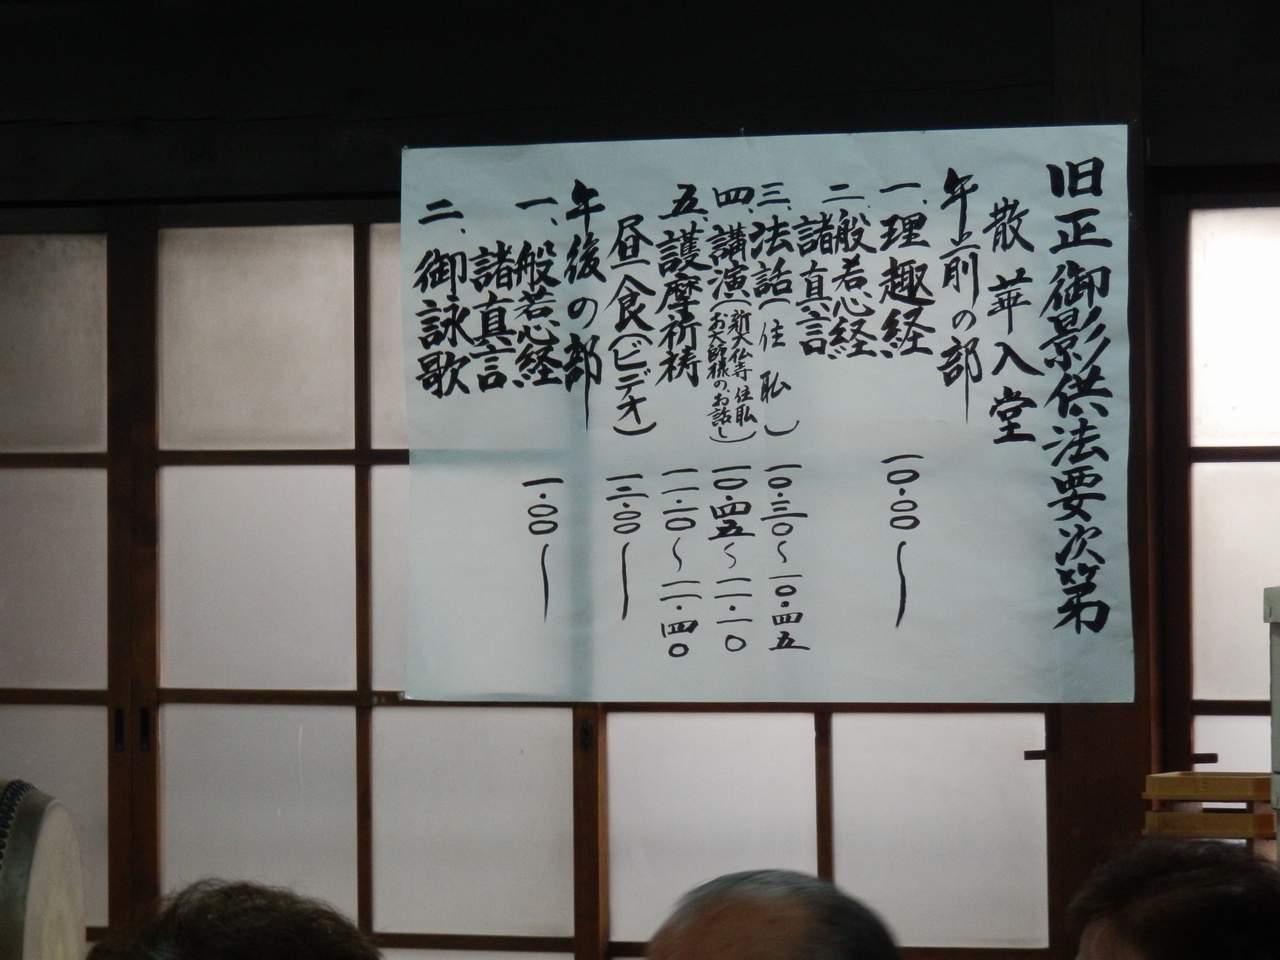 旧正御影供法要次第
散華入堂
午前の部
一、理趣経 一〇・〇〇〜
二、般若心経
諸真言
三、法話(住職) 一〇・三〇〜一〇・四五
四、講演(新大仏寺住職 お大師様のお話し) 一〇・四五〜一一・一〇
五、護摩祈祷 一一・一〇〜一一・四〇
昼食(ビデオ) 一二・〇〇〜
午後の部
一、般若心経 一・〇〇〜
諸真言
二、御詠歌